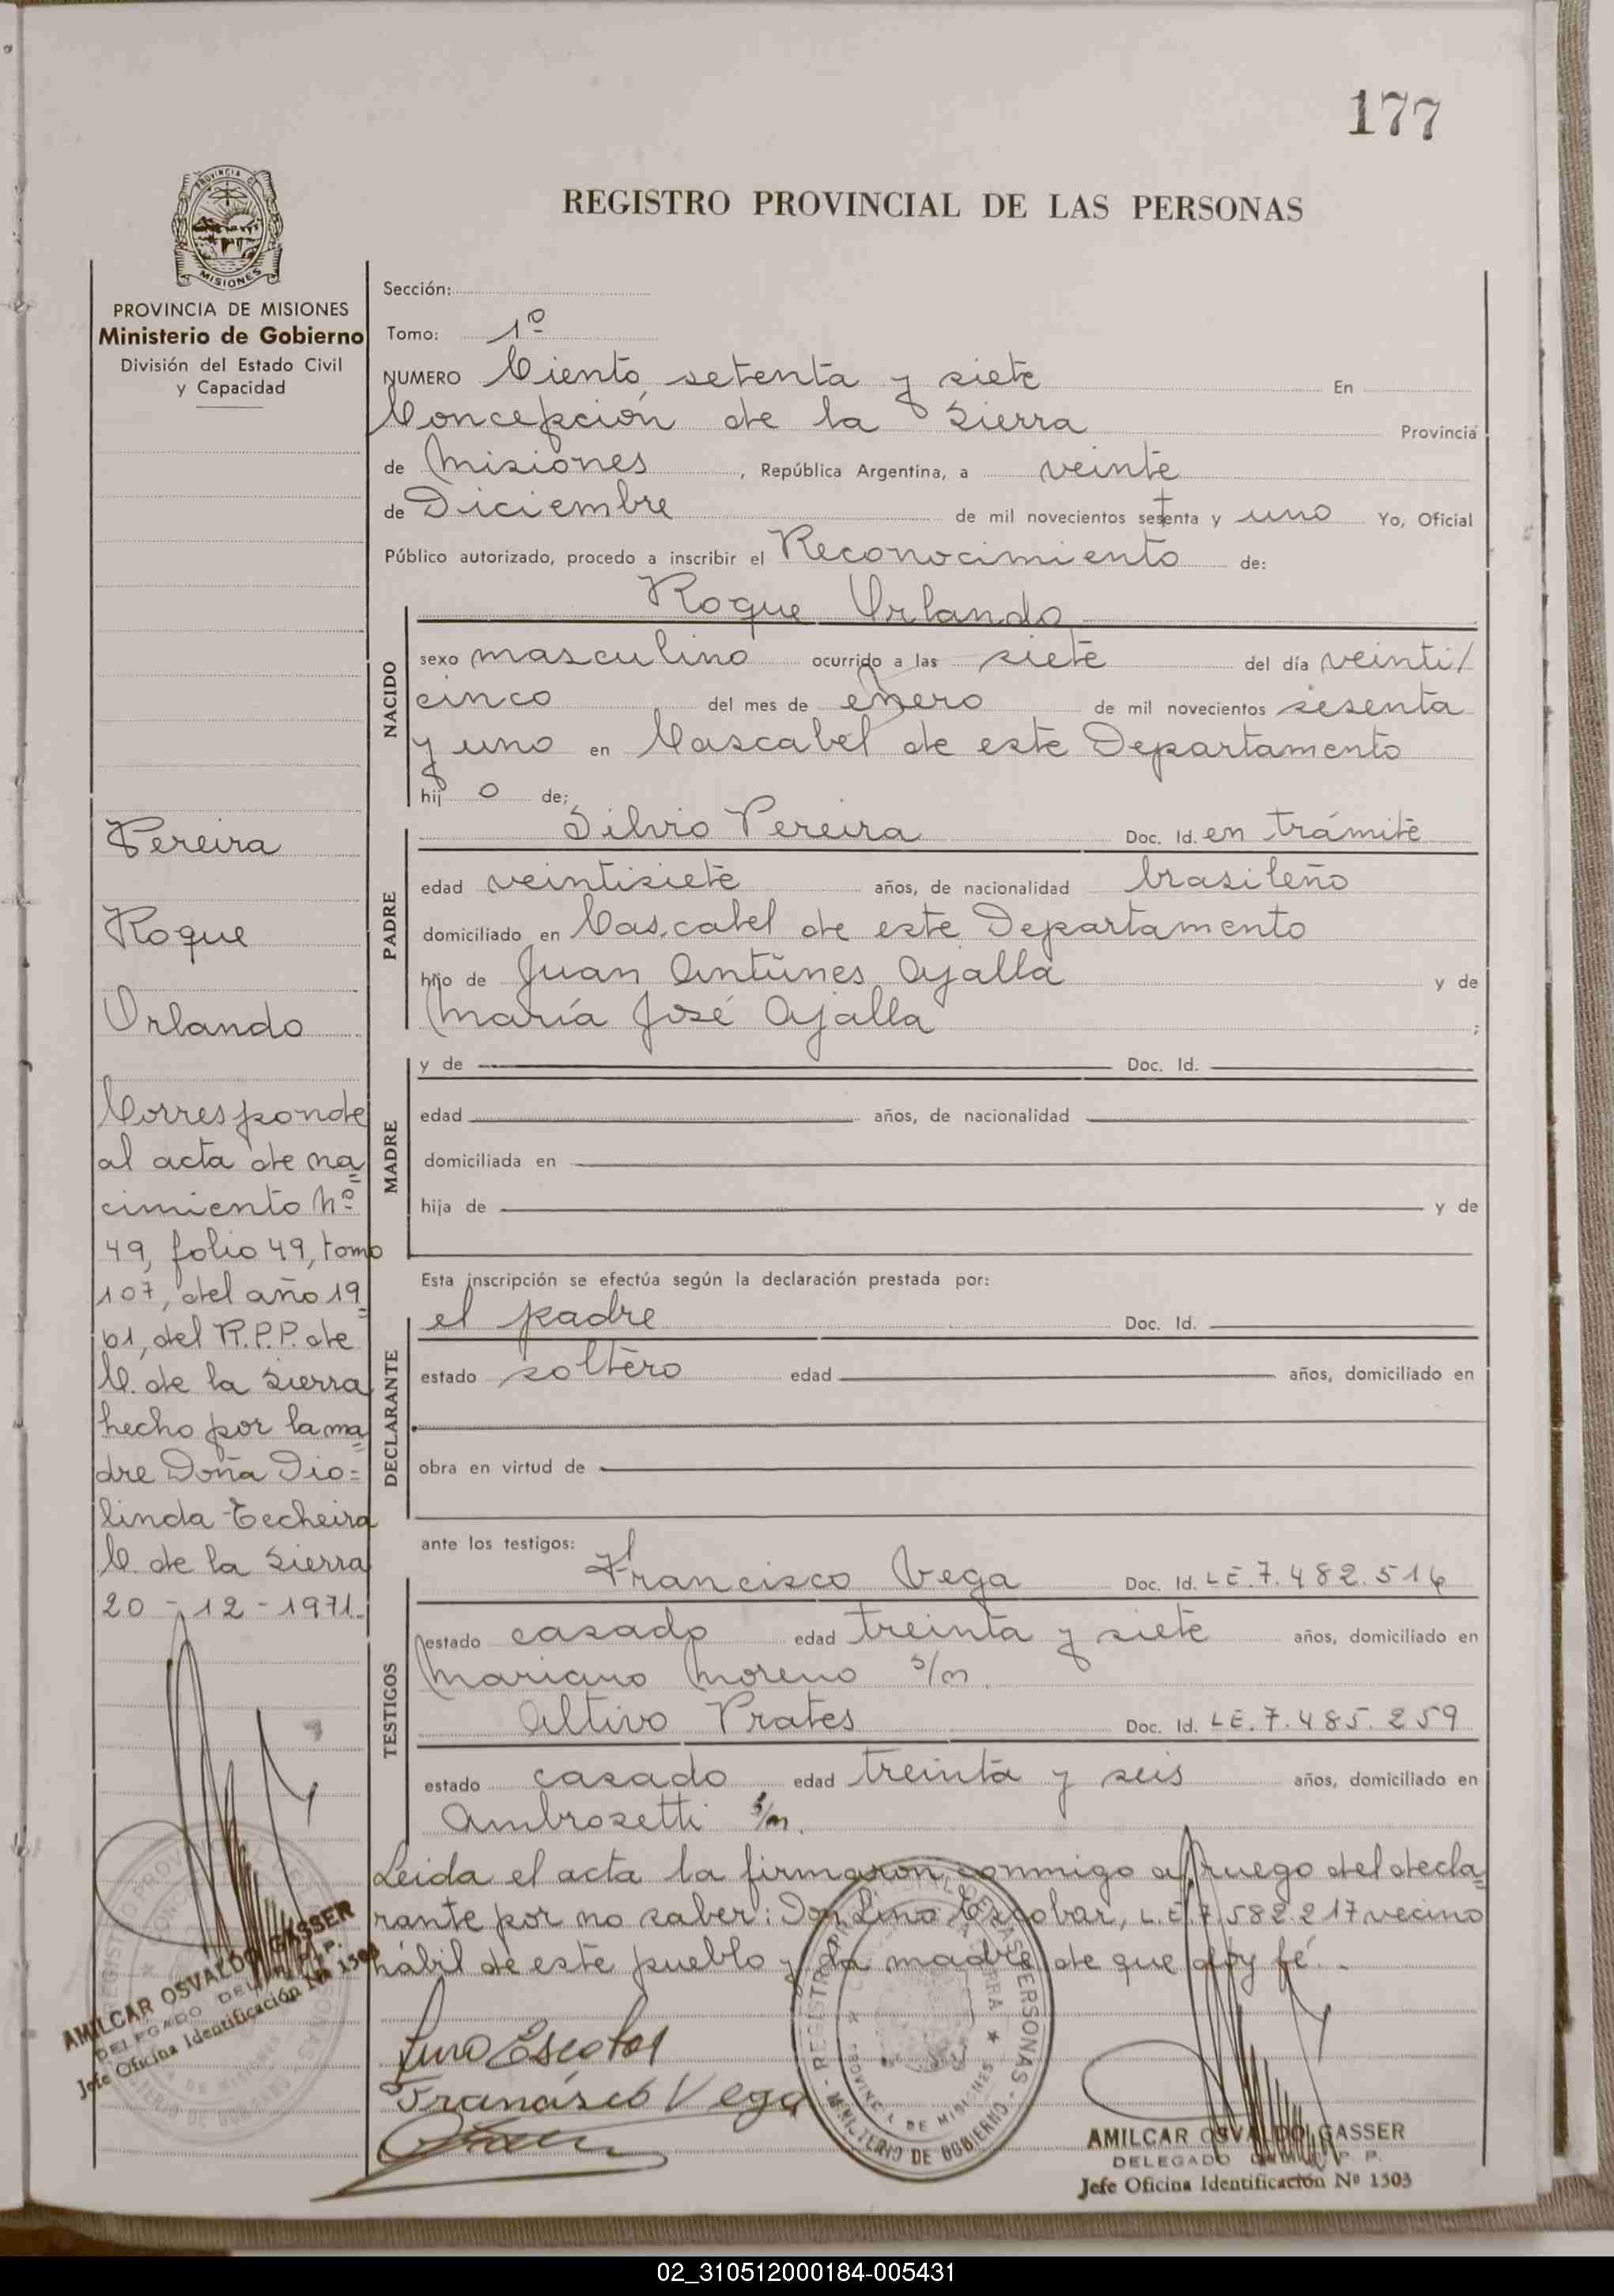 177
REGISTRO PROVINCIAL DE LAS PERSONAS
PROVINCIA DE MISIONES
Ministerio de Gobierno
División del Estado Civil
y Capacidad
Pereira
Roque
Orlando
Corresponde
al acta de na=
cimiento Nº
49, folio 49, tomo
107, del año 19=
61, del R.P.P. de
C. de la Sierra
hecho por la ma=
dre Doña Dio=
linda Techeira
C. de la Sierra
20 - 12 - 1971.-
AMILCAR OSVALDO GASSER
DELEGADO DEL R. P. P.
Jefe Oficina Identificación Nº 1503
Sección:
Tomo: 1º
NUMERO Ciento setenta y siete En
Concepción de la Sierra Provincia
de Misiones, República Argentina, a veinte
de Diciembre de mil novecientos setenta y uno Yo, Oficial
Público autorizado, procedo a inscribir el Reconocimiento de:
Roque Orlando
NACIDO
sexo masculino ocurrido a las siete del día veinti/
cinco del mes de enero de mil novecientos sesenta
y uno en Cascabel de este Departamento
hij o de;
PADRE
Silvio Pereira Doc. Id. en trámite
edad veintisiete años, de nacionalidad brasileño
domiciliado en Cascabel de este Departamento
hijo de Juan Antúnes Ajalla y de
María José Ajalla ;
MADRE
y de Doc. Id.
edad años, de nacionalidad
domiciliada en
hija de y de
Esta inscripción se efectúa según la declaración prestada por:
DECLARANTE
el padre Doc. Id.
estado soltero edad años, domiciliado en
obra en virtud de
ante los testigos:
TESTIGOS
Francisco Vega Doc. Id. LE. 7.482.516
estado casado edad treinta y siete años, domiciliado en
Mariano Moreno s/n.
Altivo Prates Doc. Id. LE. 7.485.259
estado casado edad treinta y seis años, domiciliado en
Ambrosetti s/n.
Leida el acta la firmaron conmigo a ruego del decla=
rante por no saber: Don Lino Escobar, L.E. 7.582.217 vecino
hábil de este pueblo y la madre de que doy fé.-
Lino Escobar
Francisco Vega
AMILCAR OSVALDO GASSER
DELEGADO DEL R. P. P.
Jefe Oficina Identificación Nº 1503
02_310512000184-005431